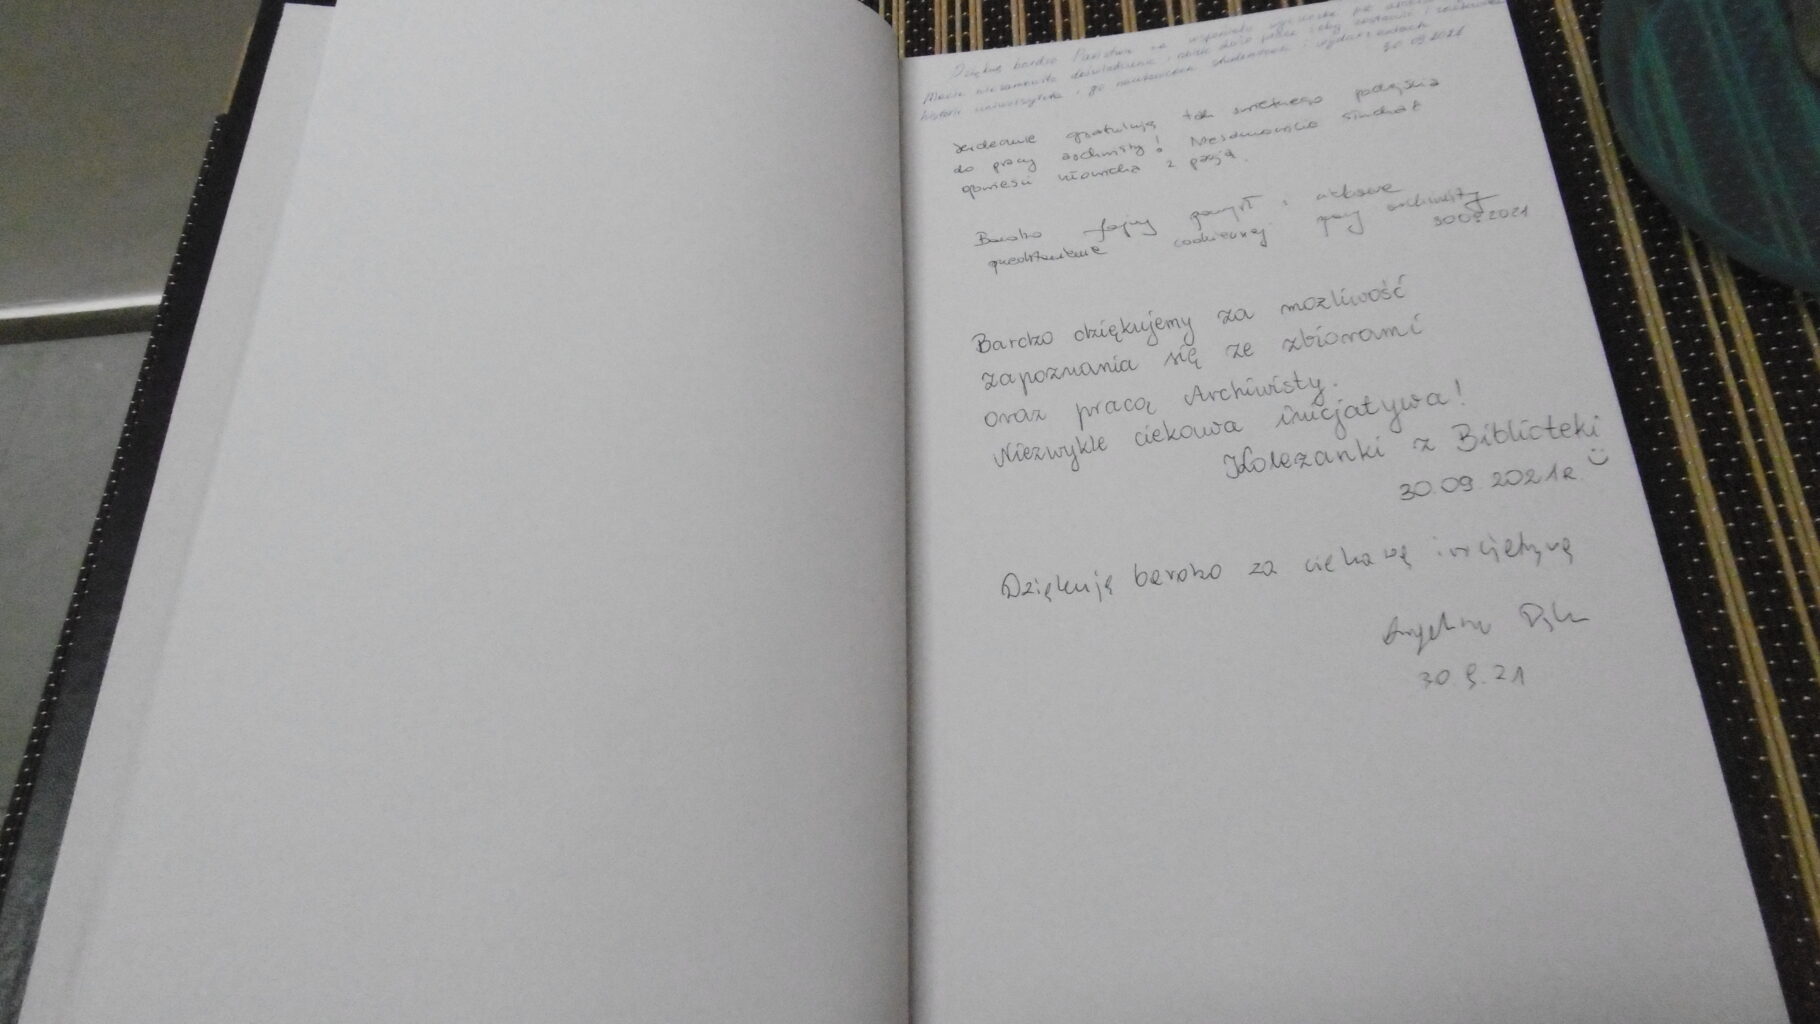 Dziękuję bardzo Państwu za wspaniałą
Macie niesamowite doświadczenie,
historii uniwersytetu, go naukowcach studentach i wydarzeniach
30.09.2021
Serdecznie gratuluję tak świetnego podejścia
do pracy archiwisty! Niesamowicie słuchać
opowieści człowieka z pasją.
Bardzo fajny pomysł i ciekawe
przedstawienie codziennej pracy archiwisty
30.09.2021
Bardzo dziękujemy za możliwość
zapoznania się ze zbiorami
oraz pracą Archiwisty.
Niezwykle ciekawa inicjatywa!
Koleżanki z Biblioteki
30.09.2021r.
Dziękuję bardzo za ciekawą inicjatywę
30.9.21